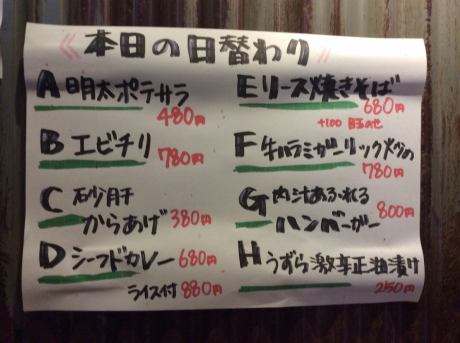 《本日の日替わり》
A 明太ポテサラ
480円
B エビチリ
780円
C 砂肝
からあげ 380円
D シーフドカレー 680円
ライス付 880円
E リース焼きそば
680円
+100 目玉のせ
F 牛ハラミガーリック炒め
780円
G 肉汁あふれる
ハンバーガー 800円
H うずら激辛正油漬け
250円